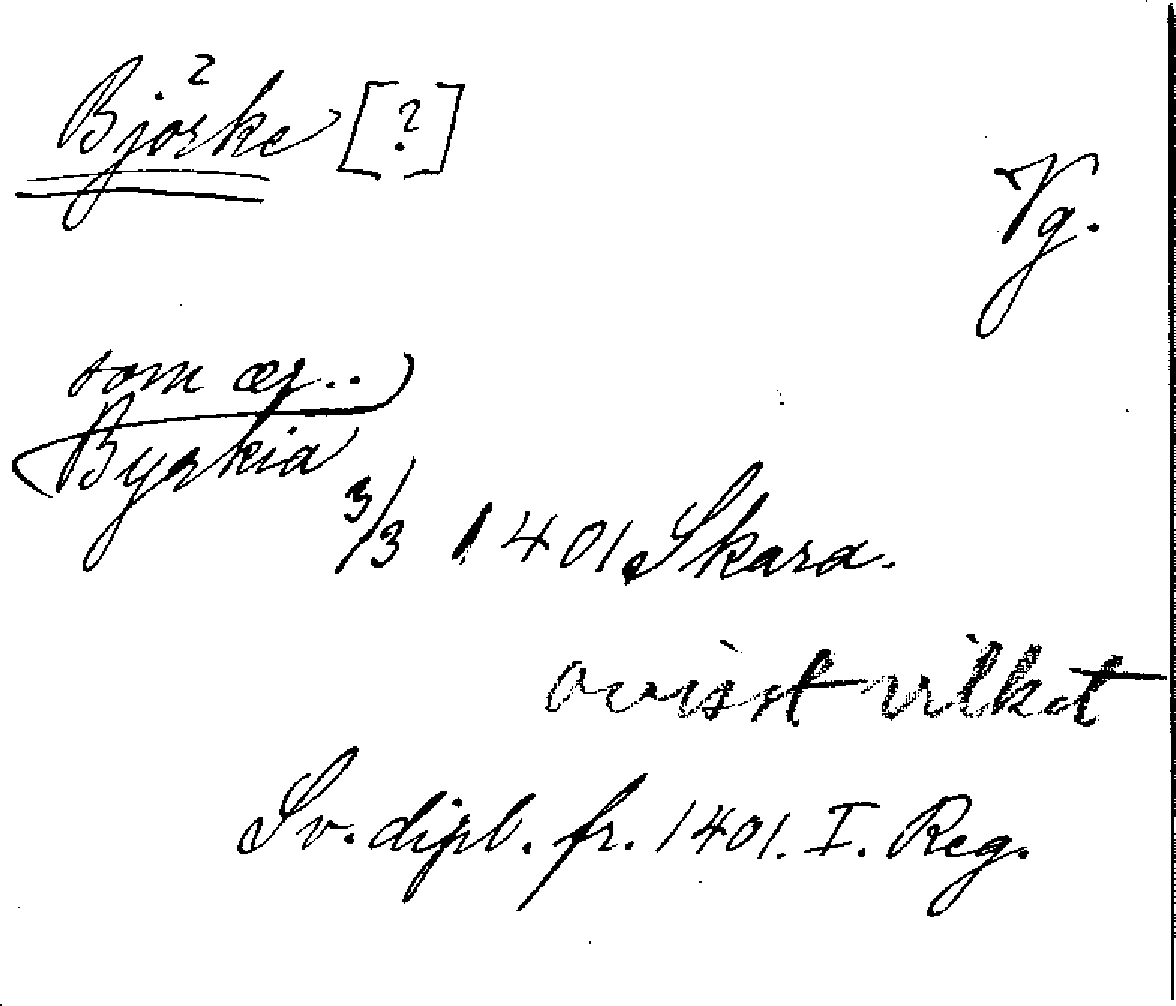 Björke [?]
Vg.
somær..
Byrkia
3/3 1401 Skara.
ovisst vilket
Sv. dipl. fr. 1401. I. Reg.